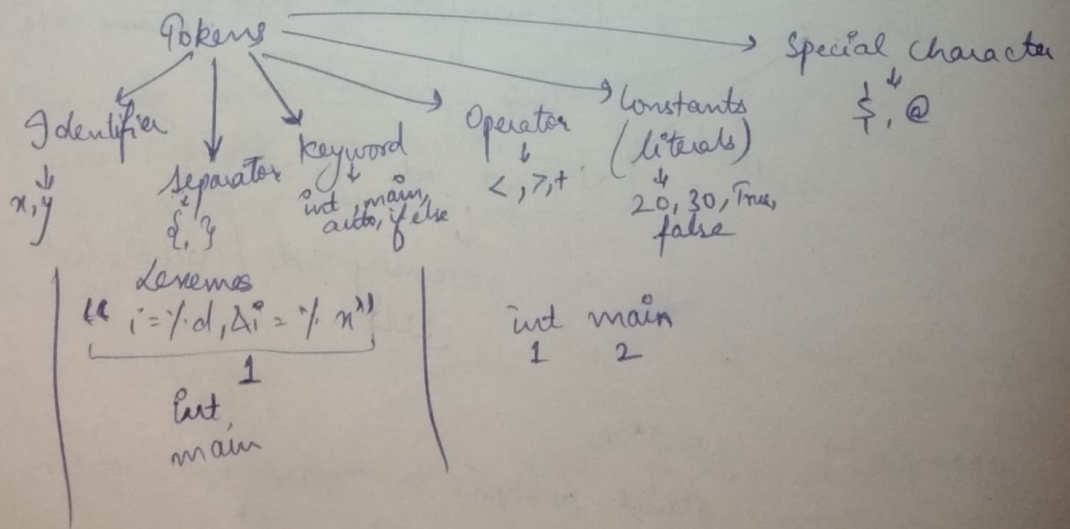 Tokens
Special Character
$, @
Identifier
x, y
Separator
{, }
Keyword
int, main,
auto, if else
Operator
<, >, +
Constants
(literals)
20, 30, True,
false
Lexemes
“ i = %d, &i = % x”
1
int,
main
int main
1 2